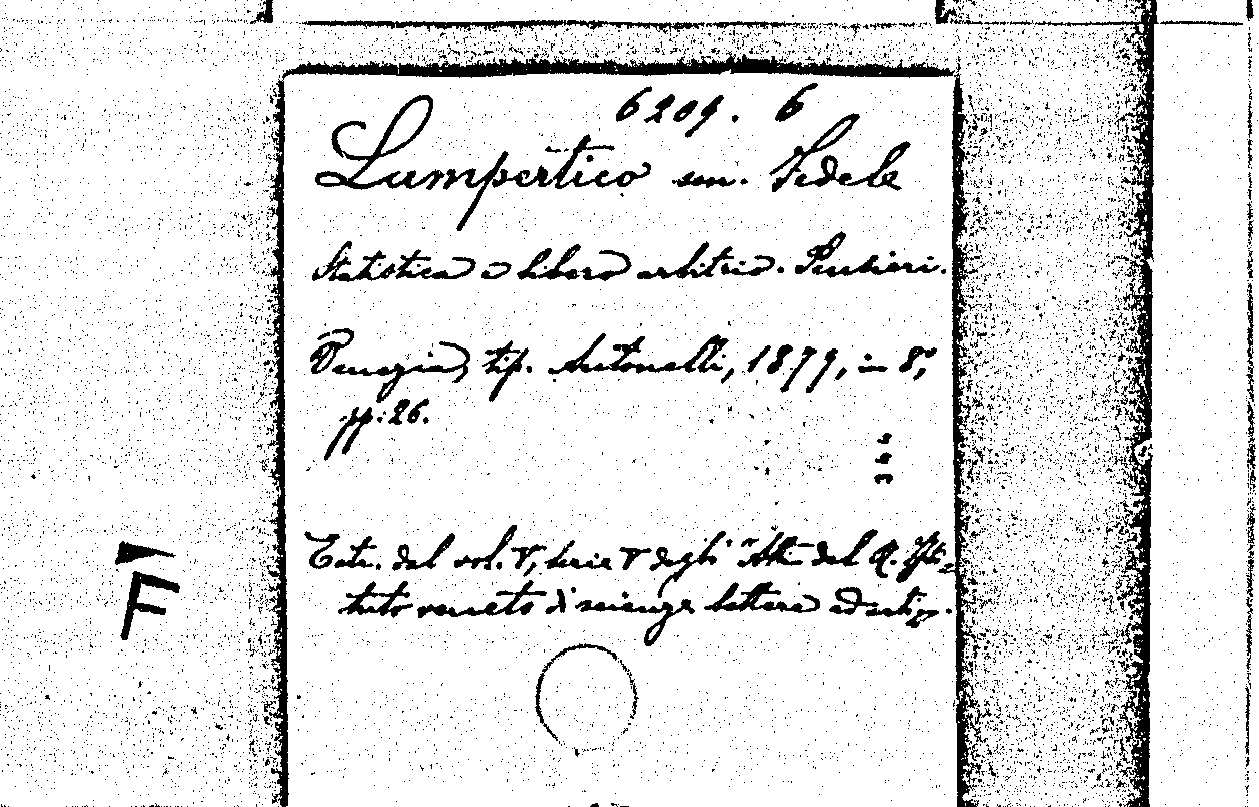 6209. 6
Lampertico sen. Fedele
Statistica e libero arbitrio. Pensieri.
Venezia, tip. Antonelli, 1879, in 8°,
pp. 26.
Estr. dal vol. V, serie V degli "Atti del R. Isti-
tuto veneto di scienze lettere ed arti".
F